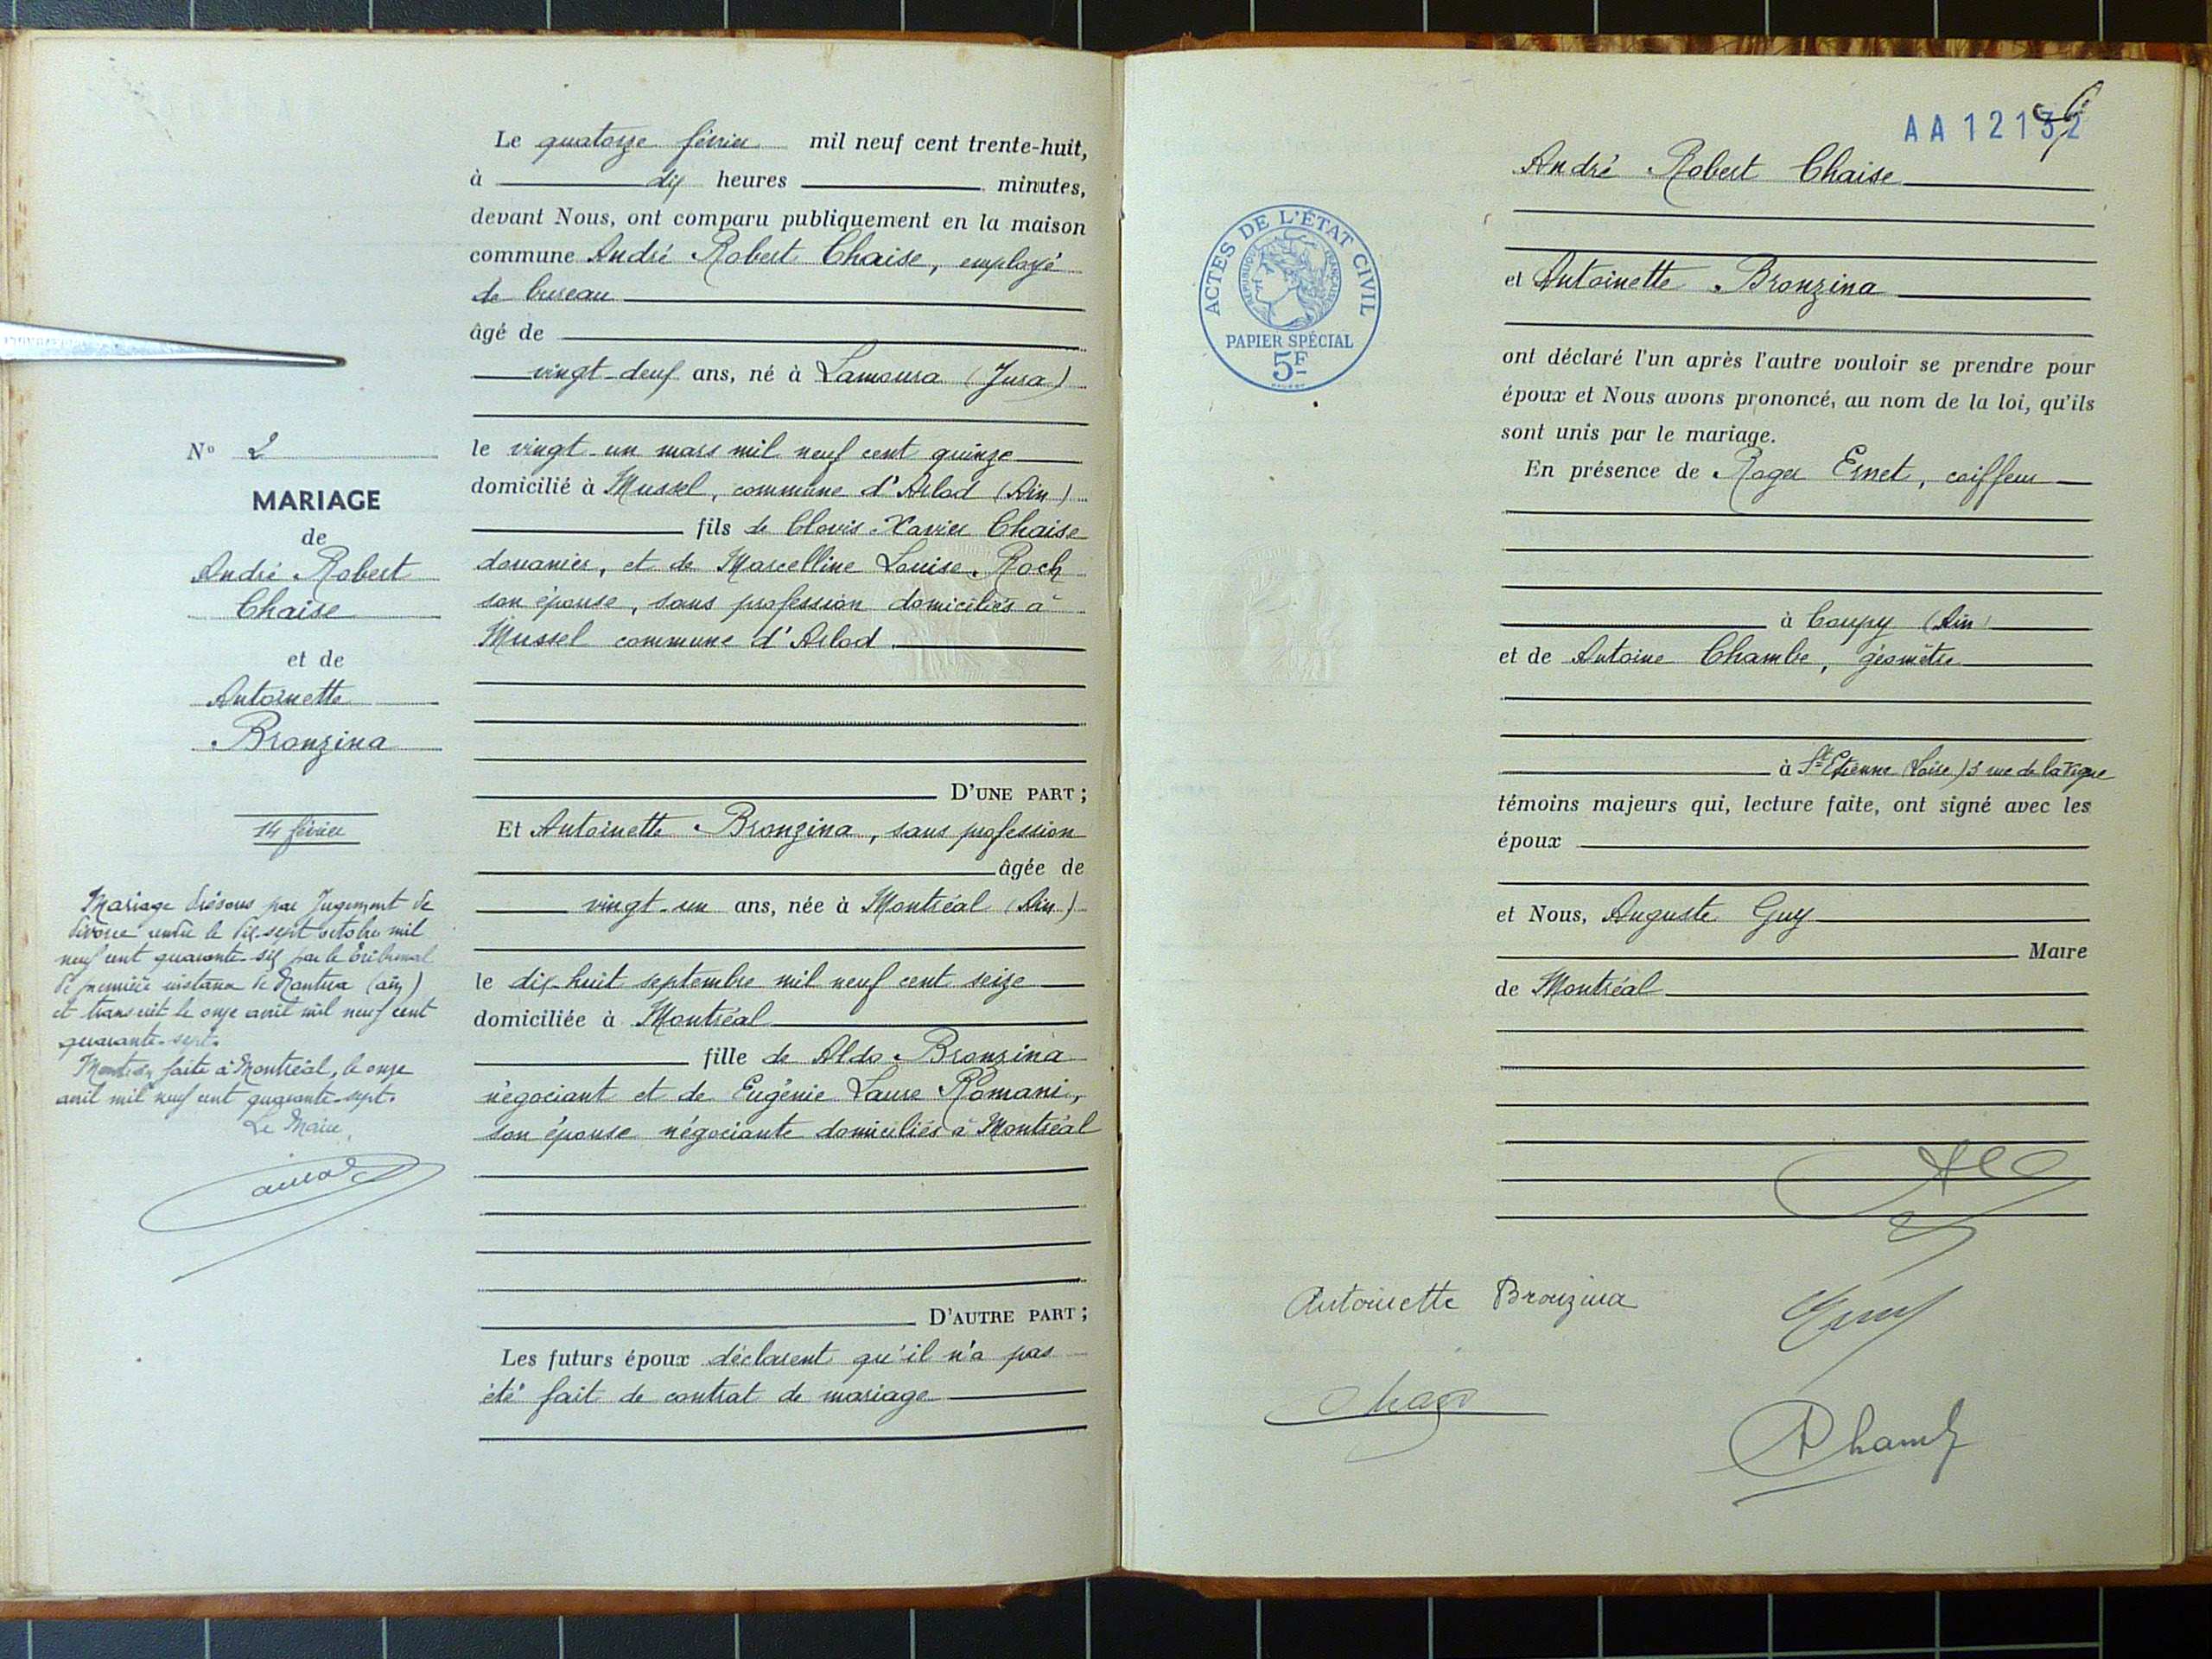 N° 2
MARIAGE
de
André Robert
Chaise
et de
Antoinette
Bronzina
14 février
Mariage dissous par Jugement de
divorce rendu le dix-sept octobre mil
neuf cent quarante-six par le tribunal
de première instance de Nantua (ain)
et transcrit le onze avril mil neuf cent
quarante-sept.
Mention faite à Montréal, le onze
avril mil neuf cent quarante-sept.
Le Maire,
Le quatorze février mil neuf cent trente-huit,
à dix heures minutes,
devant Nous, ont comparu publiquement en la maison
commune André Robert Chaise, employé
de bureau
âgé de
vingt-deux ans, né à Lamoura (Jura)
le vingt-un mars mil neuf cent quinze
domicilié à Mussel, commune d'Arlod (Ain)
fils de Clovis Xavier Chaise
douanier, et de Marcelline Louise Roch
son épouse, sans profession domiciliés à
Mussel commune d'Arlod.
D'UNE PART ;
Et Antoinette Bronzina, sans profession
âgée de
vingt-un ans, née à Montréal (Ain)
le dix-huit septembre mil neuf cent seize
domiciliée à Montréal
fille de Aldo Bronzina
négociant et de Eugénie Laure Romani,
son épouse négociante domiciliés à Montréal
D'AUTRE PART ;
Les futurs époux déclarent qu'il n'a pas
été fait de contrat de mariage
AA 12132
ACTES DE L'ÉTAT CIVIL
RÉPUBLIQUE FRANÇAISE
PAPIER SPÉCIAL
5F
André Robert Chaise
et Antoinette Bronzina
ont déclaré l'un après l'autre vouloir se prendre pour
époux et Nous avons prononcé, au nom de la loi, qu'ils
sont unis par le mariage.
En présence de Roger Ernet, coiffeur
à Coupy (Ain)
et de Antoine Chambe, géomètre
à St Etienne (Loire) 5 rue de la Vigne
témoins majeurs qui, lecture faite, ont signé avec les
époux
et Nous, Auguste Guy
Maire
de Montréal
Antoinette Bronzina